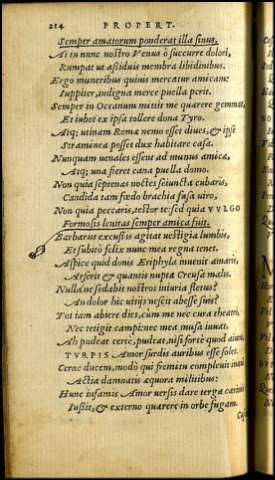 214 PROPERT.
Semper amatorum ponderat illa sinus.
At tu nunc nostro Venus ô succurre dolori,
Rumpat ut assiduis membra libidinibus.
Ergo muneribus quiuis mercatur amicam:
Iuppiter, indigna merce puella perit.
Semper in Oceanum mittit me quærere gemmas,
Et iubet ex ipsa tollere dona Tyro.
Atq; utinam Romæ nemo esset diues, & ipse
Straminea posset dux habitare casa.
Nunquam uenales essent ad munus amicæ,
Atq; una fieret cana puella domo.
Non quia septenas noctes seiuncta cubaris,
Candida tam fœdo brachia fusa uiro,
Non quia peccaris, testor te: sed quia VVLGO
Formosis leuitas semper amica fuit.
Barbarus excussis agitat uestigia lumbis,
Et subitò felix nunc mea regna tenet.
Aspice quid donis Eriphyla inuenit amaris,
Arserit & quantis nupta Creusa malis.
Nulla ne sedabit nostros iniuria fletus?
An dolor hic uitijs nescit abesse suis?
Tot iam abiere dies, cùm me nec cura theatri,
Nec tetigit campi: nec mea musa iuuat.
Ah pudeat certè, pudeat, nisi fortè quod aiunt,
TVRPIS Amor surdis auribus esse solet.
Cerne ducem, modò qui fremitu compleuit inani
Actia damnatis æquora militibus:
Hunc infamis Amor uersis dare terga carinis
Iussit, & externo quærere in orbe fugam.